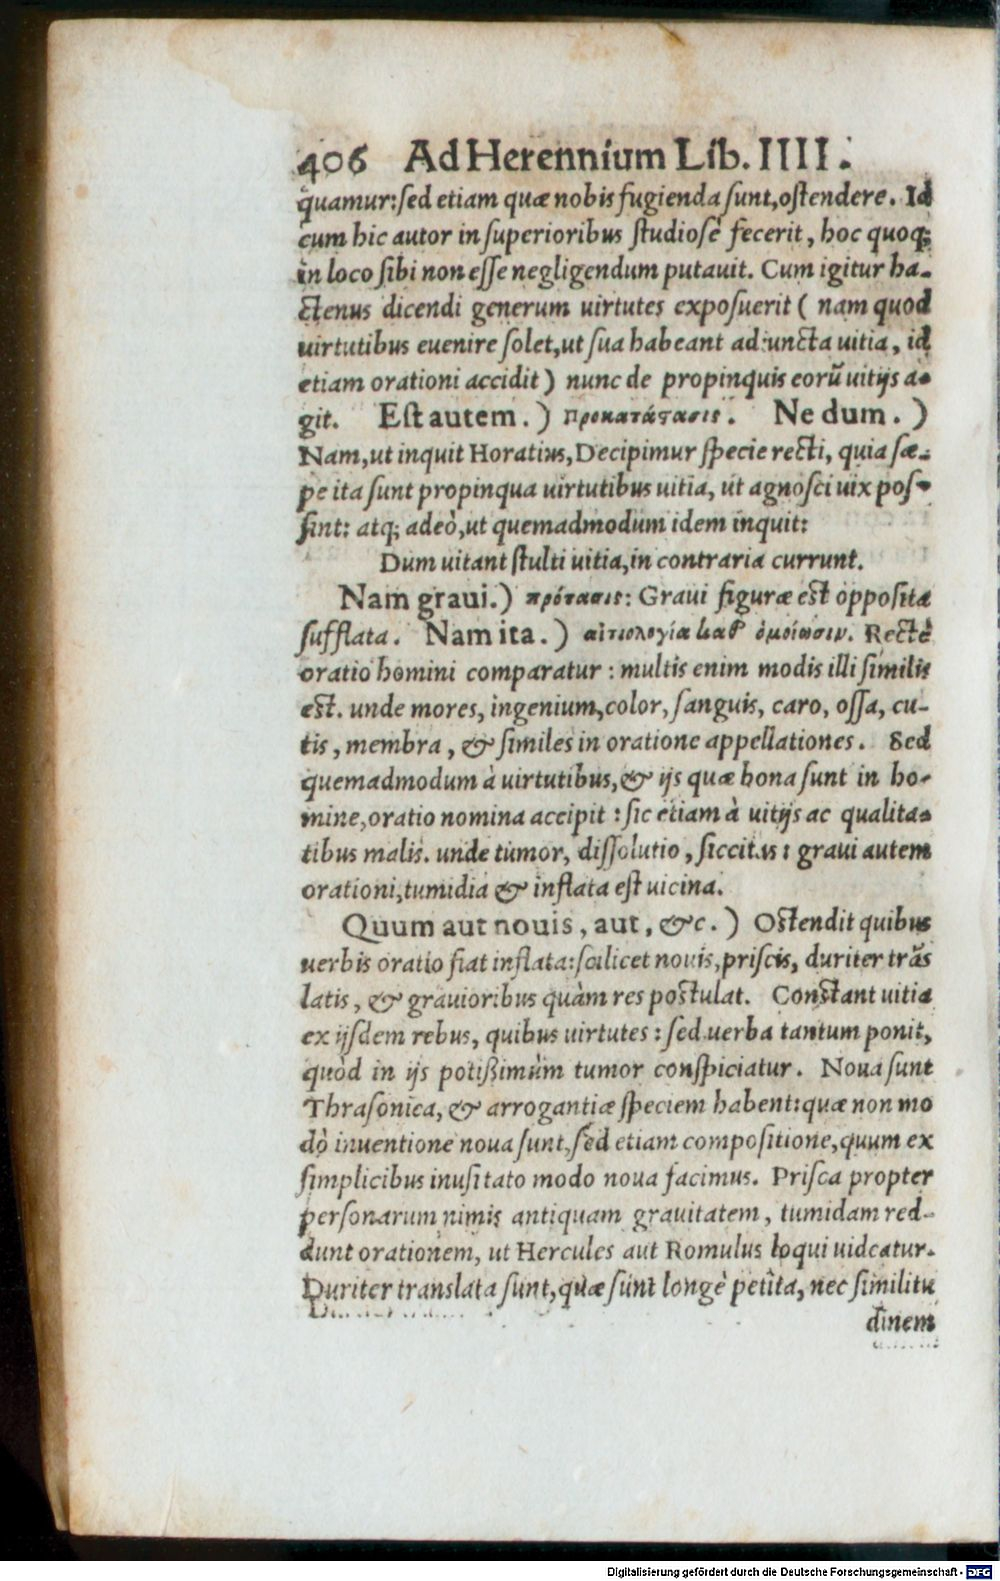 406 Ad Herennium Lib. IIII.
quamur: sed etiam quæ nobis fugienda sunt, ostendere. Id
cum hic autor in superioribus studiosè fecerit, hoc quoq;
in loco sibi non esse negligendum putauit. Cum igitur ha-
ctenus dicendi generum uirtutes exposuerit ( nam quod
uirtutibus euenire solet, ut sua habeant adiuncta uitia, id
etiam orationi accidit ) nunc de propinquis eorũ uitijs a-
git. Est autem. ) προκατάστασις. Ne dum. )
Nam, ut inquit Horatius, Decipimur specie recti, quia sæ-
pe ita sunt propinqua uirtutibus uitia, ut agnosci uix pos-
sint: atq; adeò, ut quemadmodum idem inquit:
Dum uitant stulti uitia, in contraria currunt.
Nam graui. ) πρότασις: Graui figuræ est opposita
sufflata. Nam ita. ) αἰτιολογία καθ' ὁμοίωσιν. Rectè
oratio homini comparatur : multis enim modis illi similis
est. unde mores, ingenium, color, sanguis, caro, ossa, cu-
tis, membra, & similes in oratione appellationes. Sed
quemadmodum à uirtutibus, & ijs quæ bona sunt in ho-
mine, oratio nomina accipit : sic etiam à uitijs ac qualita-
tibus malis. unde tumor, dissolutio, siccitas : graui autem
orationi, tumidia & inflata est uicina.
Quum aut nouis, aut, &c. ) Ostendit quibus
uerbis oratio fiat inflata: scilicet nouis, priscis, duriter trãs
latis, & grauioribus quàm res postulat. Constant uitia
ex ijsdem rebus, quibus uirtutes : sed uerba tantum ponit,
quòd in ijs potißimùm tumor conspiciatur. Noua sunt
Thrasonica, & arrogantiæ speciem habent: quæ non mo
dò inuentione noua sunt, sed etiam compositione, quum ex
simplicibus inusitato modo noua facimus. Prisca propter
personarum nimis antiquam grauitatem, tumidam red-
dunt orationem, ut Hercules aut Romulus loqui uideatur.
Duriter translata sunt, quæ sunt longè petita, nec similitu
dinem
Digitalisierung gefördert durch die Deutsche Forschungsgemeinschaft - DFG